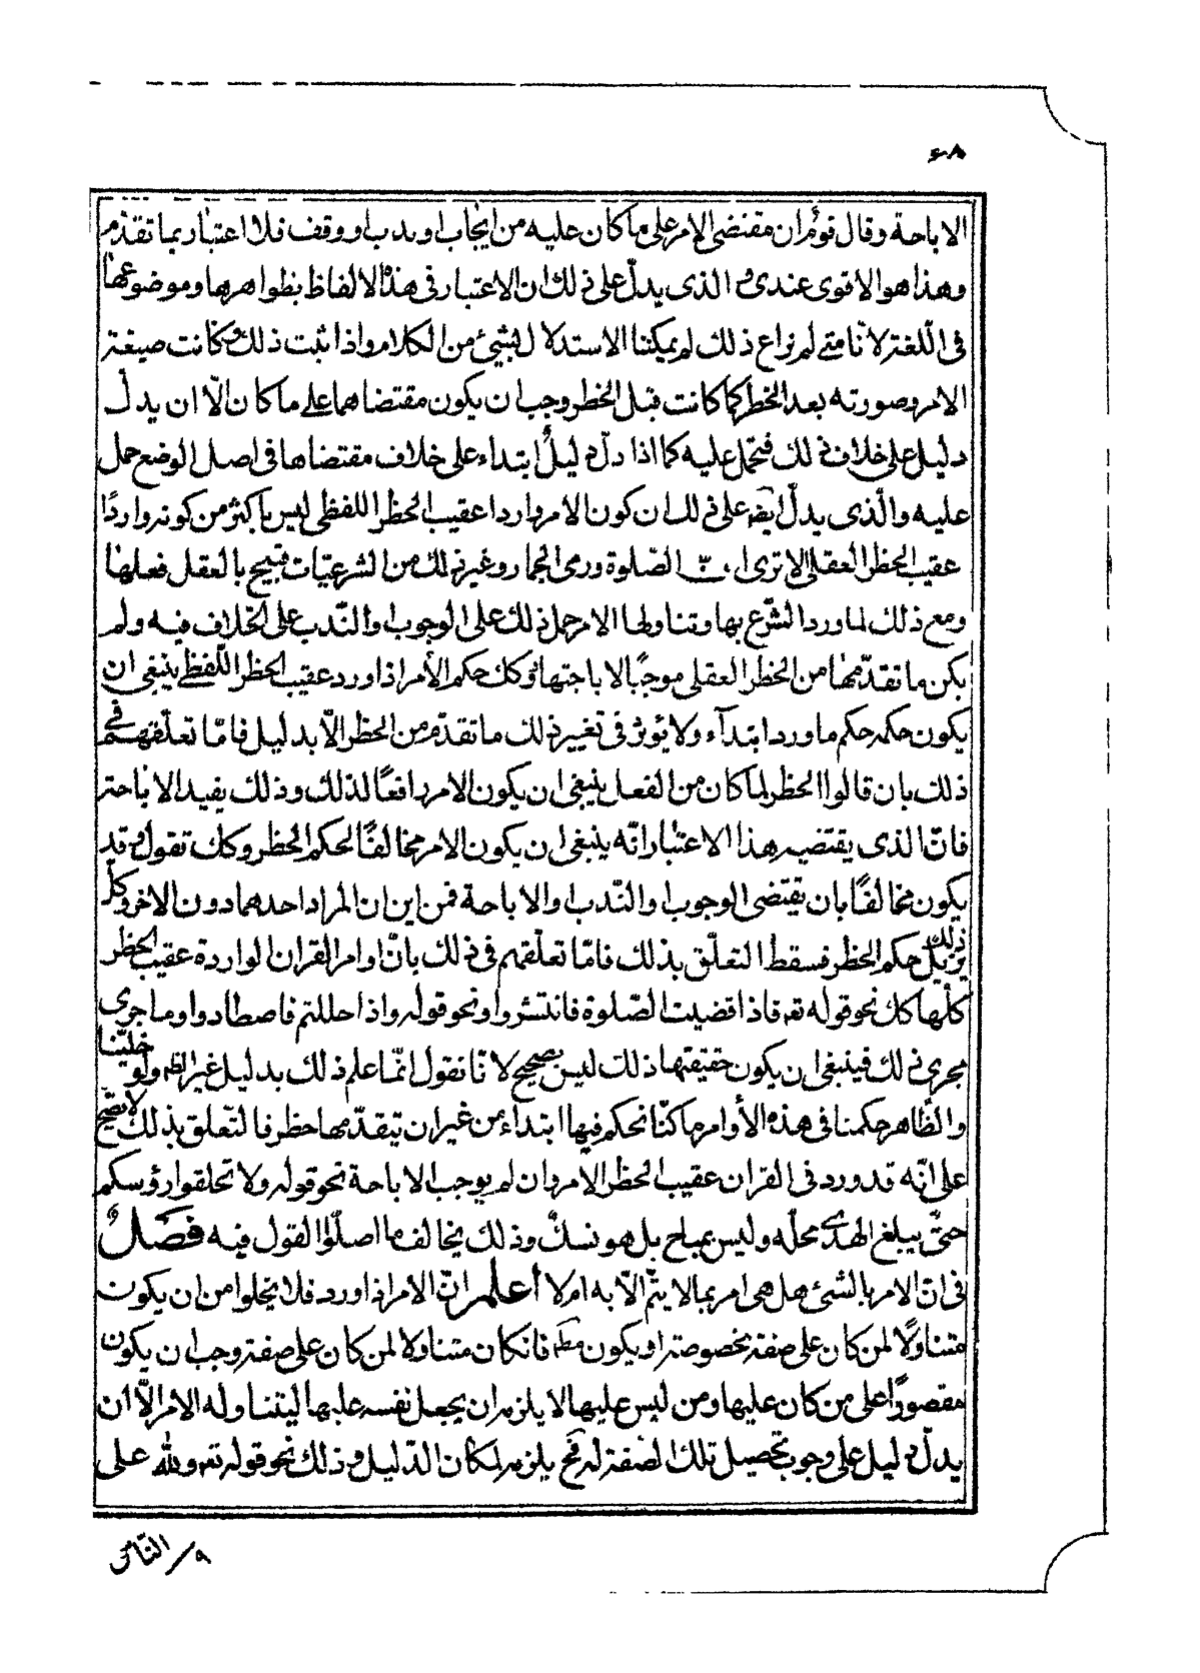 ٦٨
الاباحة وقال قوم ان مقتضى الامر على ما كان عليه من ايجاب او ندب او وقف فلا اعتبار بما تقدم
وهذا هو الاقوى عندى و الذى يدلّ على ذلك ان الاعتبار فى هذه الالفاظ بظواهرها وموضوعها
فى اللّغة لانّا متى لم نراع ذلك لم يمكننا الاستدلال بشئ من الكلام واذا ثبت ذلك وكانت صيغة
الامر وصورته بعد الحظر كما كانت قبل الحظر وجب ان يكون مقتضاهما على ما كان الّا ان يدلّ
دليل على خلاف ذلك فتحمل عليه كما اذا دلّ دليلٌ ابتداء على خلاف مقتضاها فى اصل الوضع حمل
عليه والّذى يدلّ ايضه على ذلك ان كون الامر واردا عقيب الحظر اللفظى ليس باكثر من كونه واردًا
عقيب الحظر العقلى الا ترى الصّلوة ورمى الجمار وغير ذلك من الشرعيّات قبيح بالعقل فعلها
ومع ذلك لما ورد الشّرع بها وتناولها الامر حمل ذلك على الوجوب او النّدب على الخلاف فيه ولم
يكن ما تقدّمها من الحظر العقلى موجبًا لاباحتها وكك حكم الأمر اذا ورد عقيب الحظر اللّفظى ينبغى ان
يكون حكمه حكم ما ورد ابتدآء ولا يؤثر فى تغيير ذلك ما تقدّم من الحظر الّا بدليل فامّا تعلّقهم فى
ذلك بان قالوا الحظر لما كان من الفعل ينبغى ان يكون الامر رافعًا لذلك وذلك يفيد الاباحة
فانّ الذى يقتضيه هذا الاعتبار انّه ينبغى ان يكون الامر مخالفًا لحكم الحظر وكك نقول وقد
يكون مخالفًا بان يقتضى الوجوب او النّدب او الاباحة فمن اين ان المراد احدهما دون الاخر وكلّ
ذلك يزيل حكم الحظر فسقط التعلّق بذلك فامّا تعلّقهم فى ذلك بانّ اوامر القران الواردة عقيب الحظر
كلّها كك نحو قوله تعه فاذا قضيت الصّلوة فانتشروا ونحو قوله واذا حللتم فاصطادوا وما جرى
مجرى ذلك فينبغى ان يكون حقيقتها ذلك ليس بصحيح لانّا نقول انّما علم ذلك بدليل غير الظه ولو خلّينا
والظّاهر حكمنا فى هذه الأوامر ما كنّا نحكم فيها ابتداء من غير ان يتقدّمها حظر فالتّعلق بذلك لا يصحّ
على انّه قد ورد فى القران عقيب الحظر الامر وان لم يوجب الاباحة نحو قوله ولا تحلقوا رؤسكم
حتّى يبلغ الهدى محلّه وليس بمباح بل هو نسكٌ وذلك يخالف ما اصلّوا القول فيه فصلٌ
فى انّ الامر بالشئ هل هى امر بما لا يتمّ الّا به ام لا اعلم انّ الامر اذا ورد فلا يخلوا من ان يكون
متناولًا لمن كان على صفة مخصوصة او يكون مطه فانكان متناولا لمن كان على صفة وجب ان يكون
مقصورًا على من كان عليها ومن ليس عليها لا يلزمه ان يجعل نفسه عليها ليتناوله الامر الّا ان
يدلّ دليل على وجوب تحصيل تلك الصّفة له فح يلزمه لمكان الدّليل وذلك نحو قوله تعه ولله على
٩/الثامن